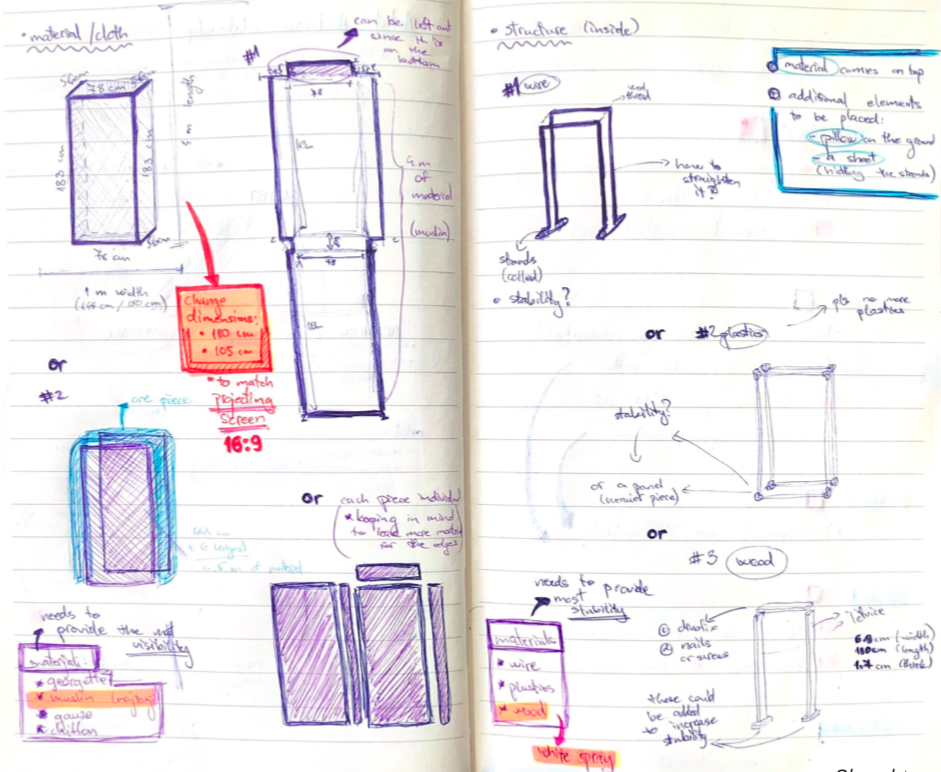 • material/cloth
56cm
78 cm
183 cm
183 cm
56cm
78 cm
5 m length
1 m width
#1
can be left out
since this is
on the
bottom
78
78
4 m
of
material
(muslin)
Change
dimensions:
• 180 cm
• 105 cm
• to match
projecting
screen
16:9
or
#2
one piece
or each piece individ
* keeping in mind
to leave more
for the edges
needs to
provide the
visibility
material:
* georgette
* muslin
* gauze
* chiffon
• structure (inside)
material comes on top
additional elements
to be placed:
- pillow on the ground
- a sheet
(hiding the stands)
#1 wire
thread
how to
straighten
it?
stands
• stability?
or #2 plastics
pls no more
plastics
stability?
of a panel
(heavier piece)
or
#3 wood
needs to provide
most
stability
material:
* wire
* plastics
* wood
white spray
① drvofix
② nails
or screws
letvice
6.8 cm (width)
180cm (length)
1.7 cm (thick)
these could
be added
to increase
stability